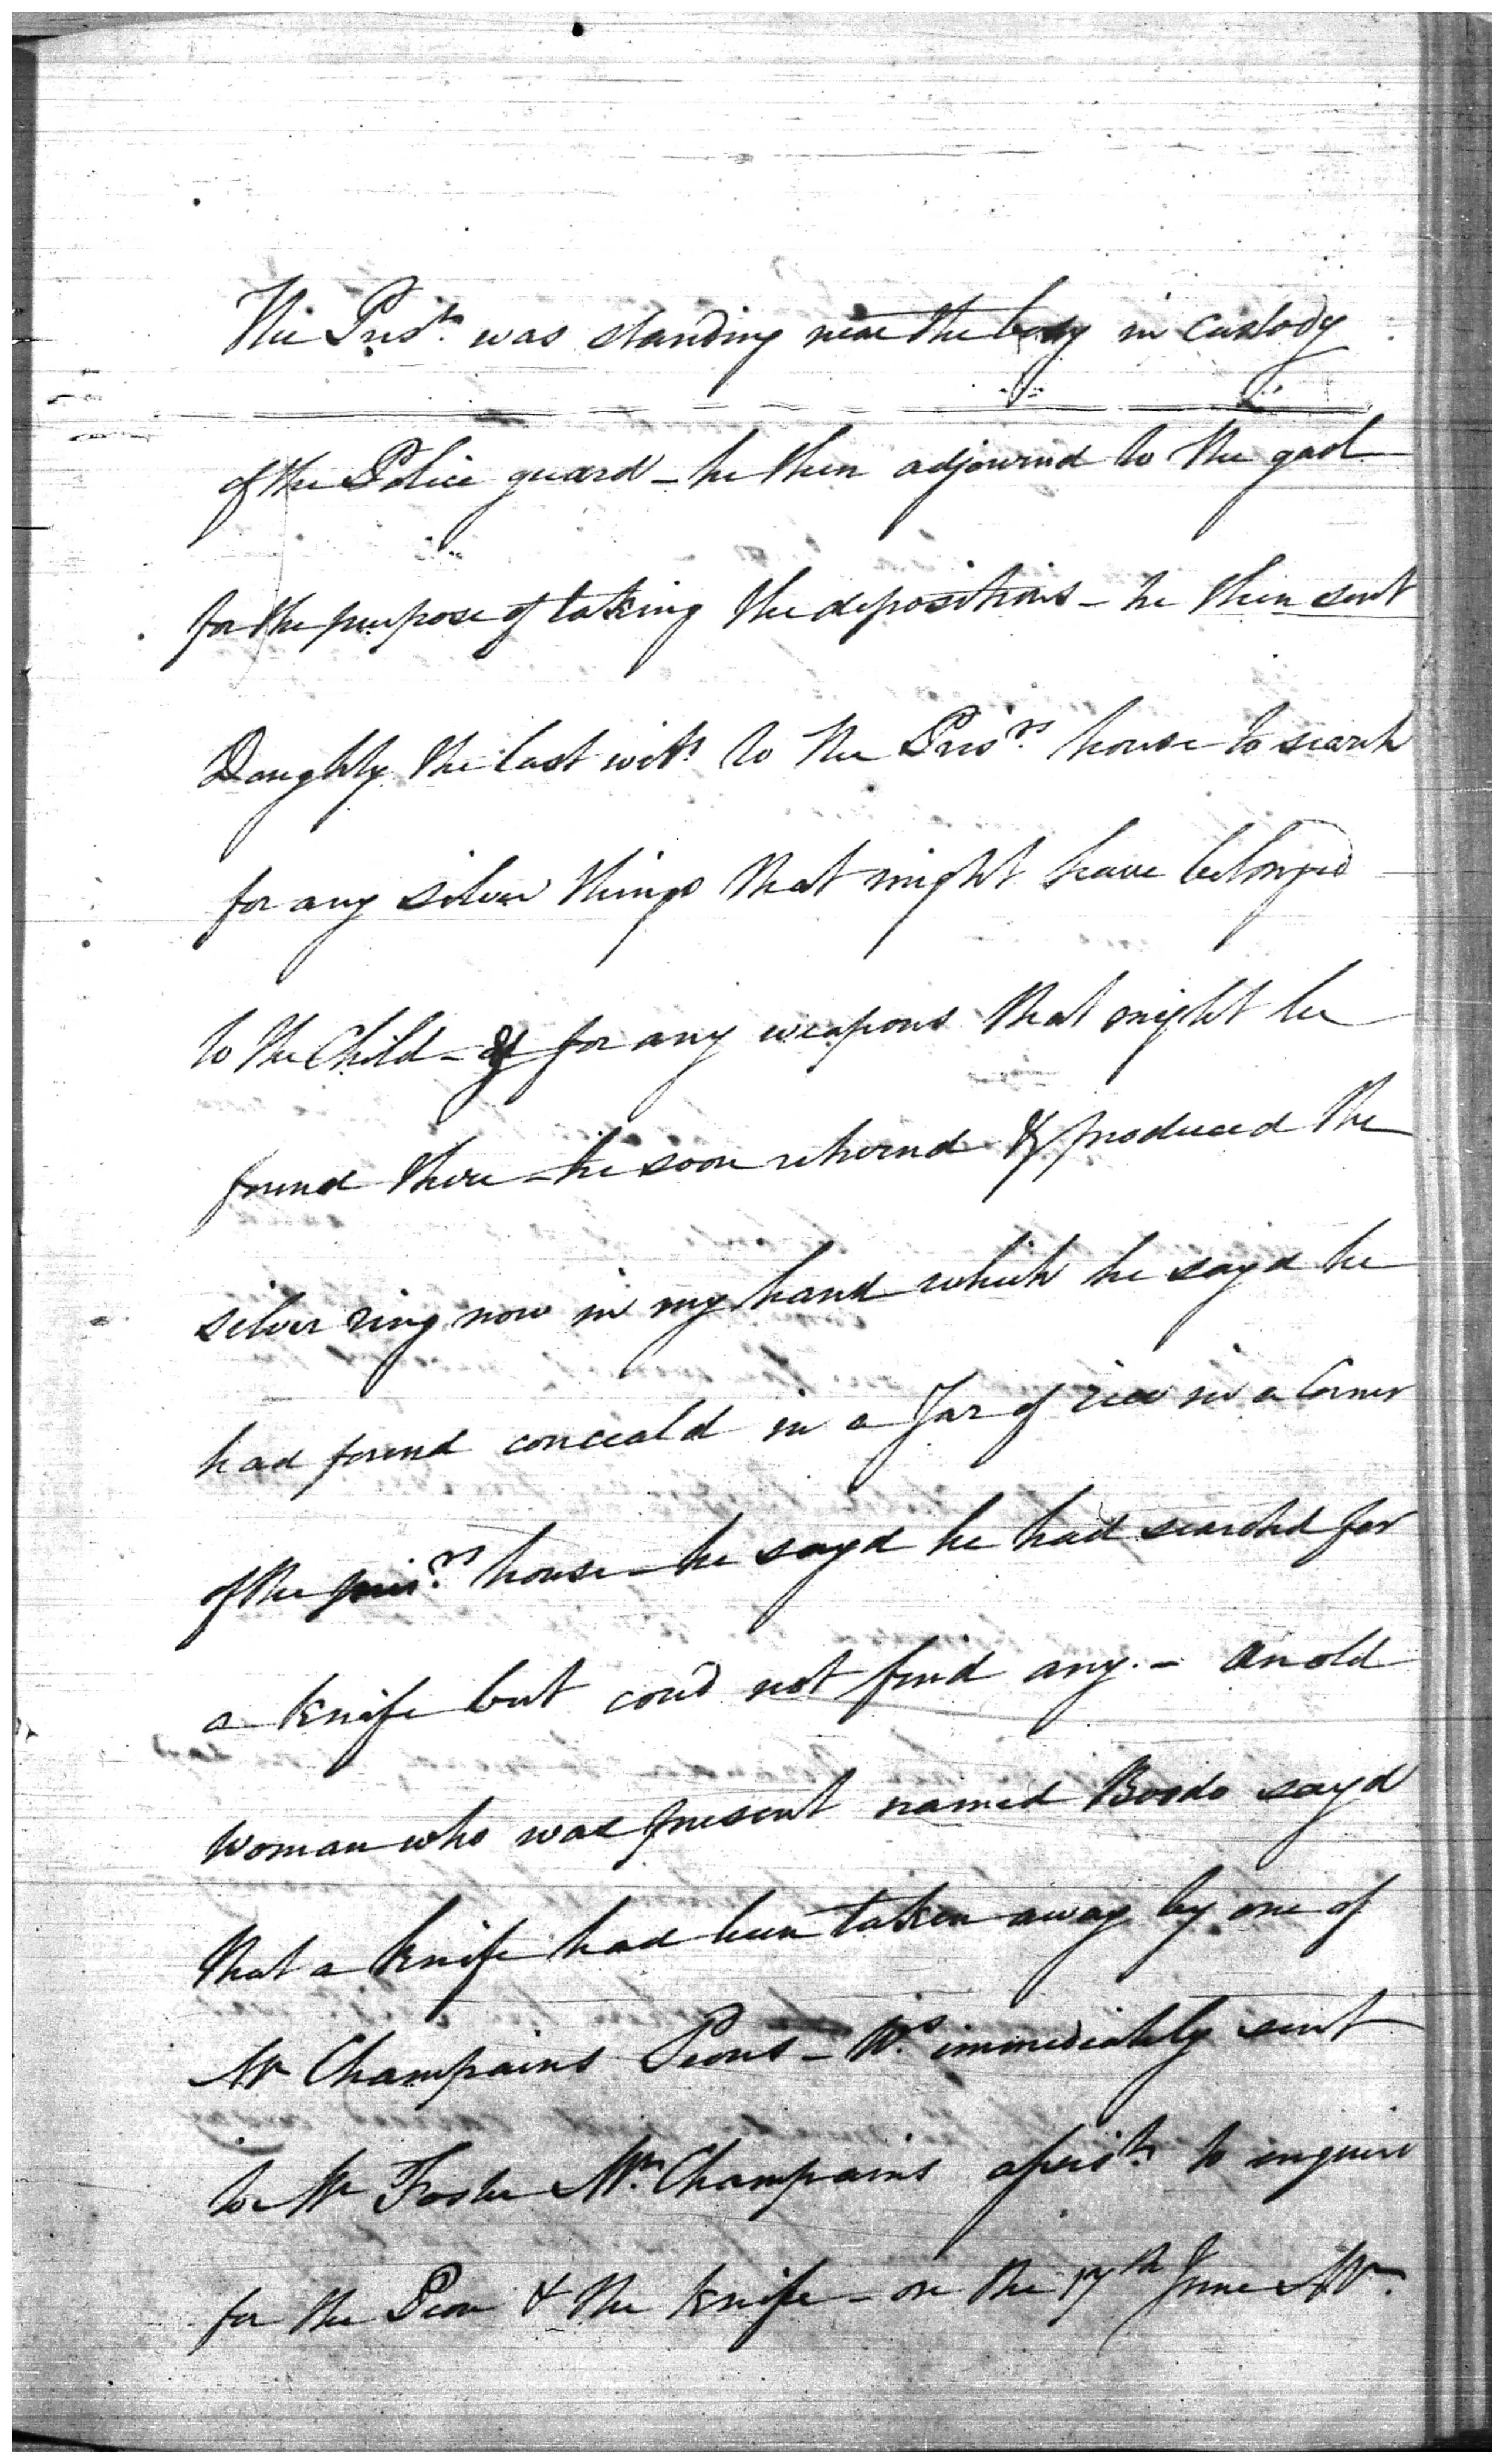 The Pris.r was standing near the body in custody
of the Police guard - he then adjournd to the gaol
for the purpose of taking the depositions - he then sent
Doughty the last wit.s to the Pris.rs house to search
for any silver things that might have belonged
to the Child - & for any weapons that might be
found there - he soon returnd & produced the
silver ring now in my hand which he sayd he
had found conceald in a Jar of rice in a Corner
of the pris.rs house - he sayd he had searched for
a knife but coud not find any. - An old
Woman who was present named Boodo sayd
that a knife had been taken away by one of
Mr Champains Peons - W.s immediately sent
to Mr Foster Mr. Champains assis.t to enquire
for the Peon & the knife - on the 17th June Mr.